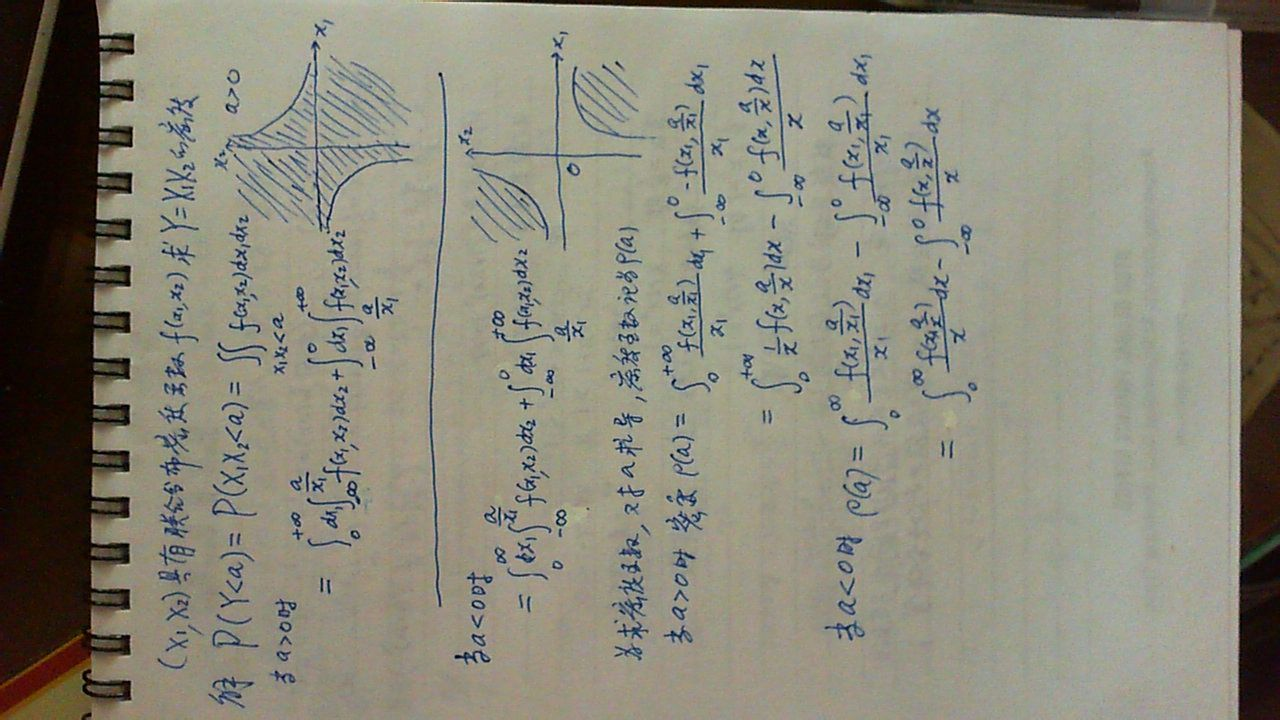 (X₁,X₂)具有联合分布密度函数 f(x₁,x₂) 求 Y=X₁X₂的密度
解 P(Y<a) = P(X₁X₂<a) = ∬_{x₁x₂<a} f(x₁,x₂)dx₁dx₂
当a>0时
= ∫_0^{+∞} dx₁ ∫_{-∞}^{a/x₁} f(x₁,x₂)dx₂ + ∫_{-∞}^0 dx₁ ∫_{a/x₁}^{+∞} f(x₁,x₂)dx₂
x₂
a>0
x₁
当a<0时
= ∫_0^∞ dx₁ ∫_{-∞}^{a/x₁} f(x₁,x₂)dx₂ + ∫_{-∞}^0 dx₁ ∫_{a/x₁}^{+∞} f(x₁,x₂)dx₂
x₂
0
x₁
为求密度函数,对a求导,密度函数记为P(a)
当a>0时 密度 P(a) = ∫_0^{+∞} f(x₁,a/x₁)/x₁ dx₁ + ∫_{-∞}^0 -f(x₁,a/x₁)/x₁ dx₁
= ∫_0^{+∞} 1/x f(x,a/x)dx - ∫_{-∞}^0 f(x,a/x)dx/x
当a<0时 P(a) = ∫_0^∞ f(x₁,a/x₁)/x₁ dx₁ - ∫_{-∞}^0 f(x₁,a/x₁)/x₁ dx₁
= ∫_0^∞ f(x,a/x)/x dx - ∫_{-∞}^0 f(x,a/x)/x dx